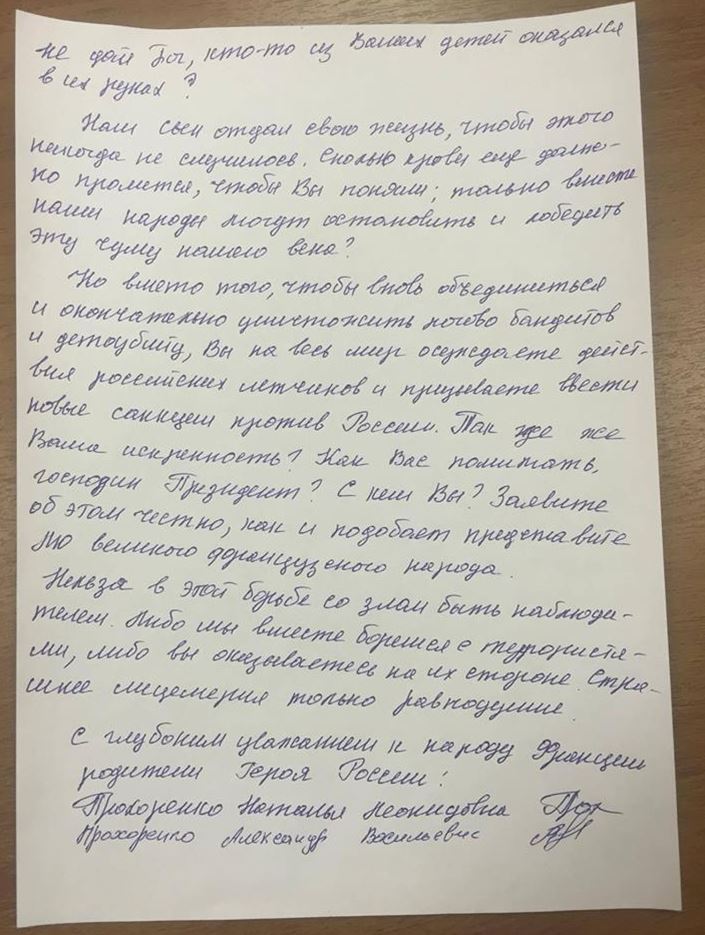 не дай Бог, кто-то из Ваших детей оказался
в их руках?
Наш сын отдал свою жизнь, чтобы этого
никогда не случилось. Сколько крови еще долж-
но пролится, чтобы Вы поняли; только вместе
наши народы могут остановить и победить
эту чуму нашего века?
Но вместо того, чтобы вновь объединиться
и окончательно уничтожить логово бандитов
и детоубийц, Вы на весь мир осуждаете дейст-
вия российских летчиков и призываете ввести
новые санкции против России. Так где же
Ваша искренность? Как Вас понимать,
господин Президент? С кем Вы? Заявите
об этом честно, как и подобает представите
лю великого французского народа.
Нельзя в этой борьбе со злом быть наблюда-
телем. Либо мы вместе боремся с террориста-
ми, либо вы оказываетесь на их стороне. Стра-
шнее лицемерия только равнодушие.
С глубоким уважением к народу Франции
родители Героя России:
Прохоренко Наталья Леонидовна
Прохоренко Александр Васильевич